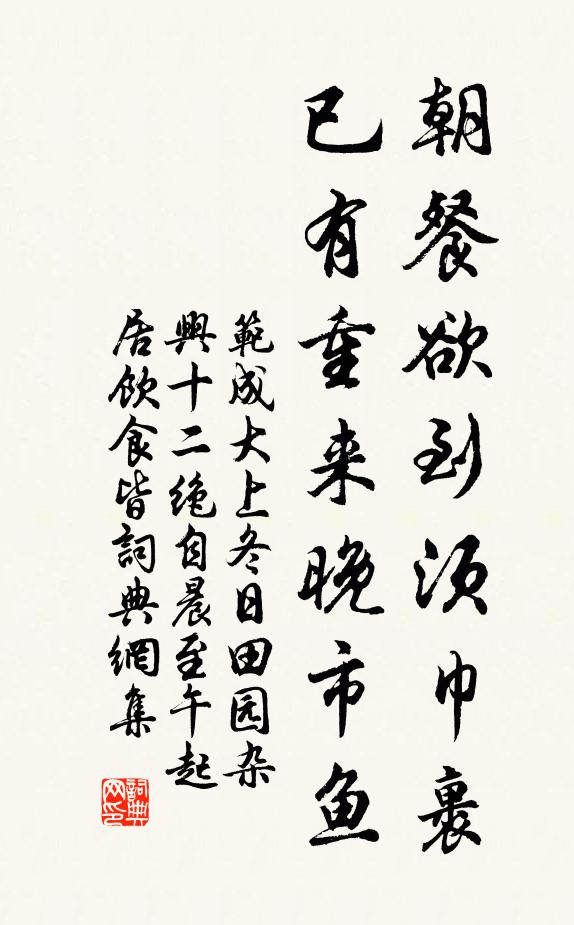 朝餐欲到须巾裹
已有重来晚市鱼
範成大上冬日田园杂
興十二绝自晨至午起
居饮食皆詞典網集
詞典网印